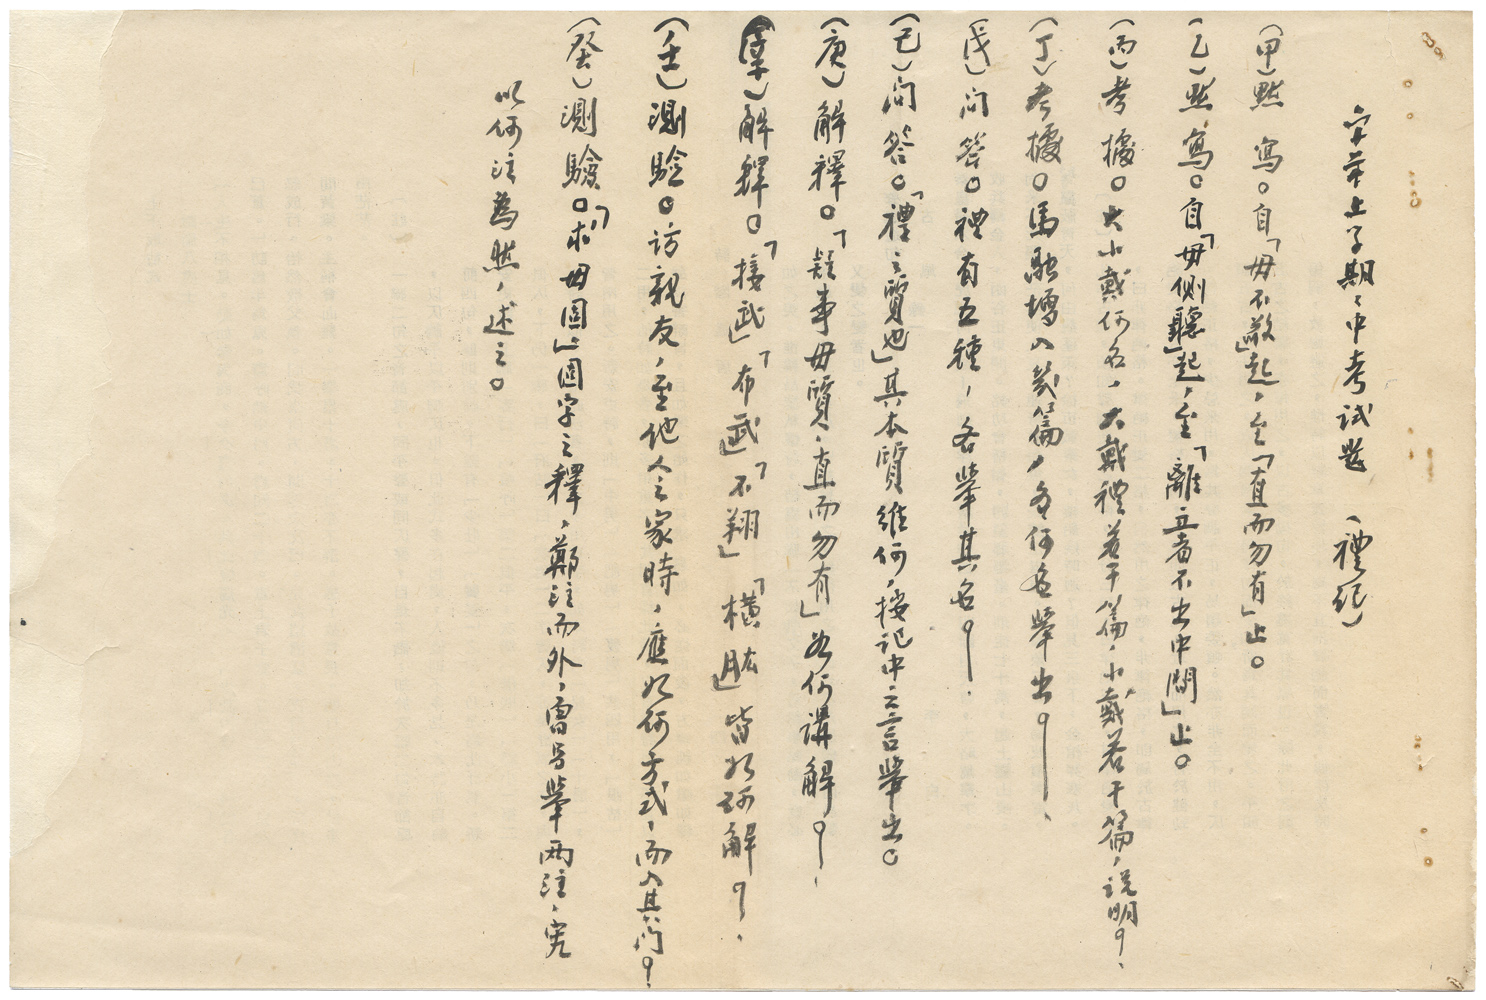 字第上学期、中考試題　（禮記）
（甲）默寫。自「毋不敬」起，至「直而勿有」止。
（乙）默寫。自「毋側聽」起，至「離立者不出中間」止。
（丙）考據。大小戴何名，大戴禮若干篇，小戴若干篇，說明？
（丁）考據。馬融增入幾篇，各何名舉出？
（戊）問答。禮有五種，各舉其名？
（己）問答。「禮之質也」其本質維何，按記中之言舉出。
（庚）解釋。「疑事毋質，直而勿有」如何講解？
（辛）解釋。「接武」「布武」「不翔」「橫肱」皆如何解？
（壬）測驗。訪親友，至他人之家時，應如何方式，而入其門？
（癸）測驗。「求毋固」固字之釋，鄭注而外，曾另舉兩注，究
以何注為然，述之。